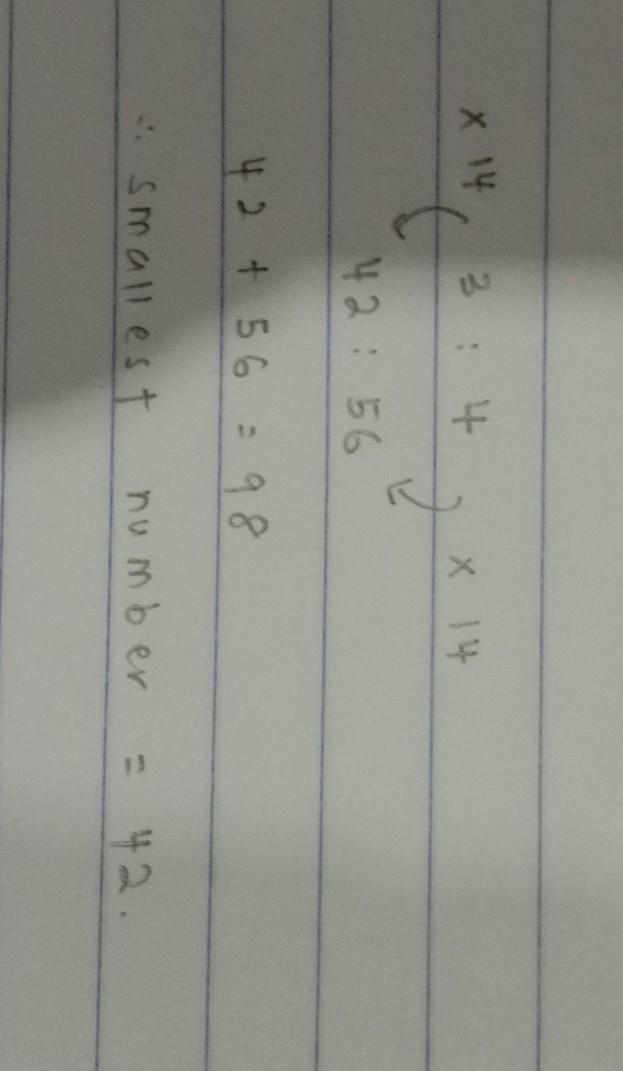 x 14 3 : 4 x 14
42 : 56
42 + 56 = 98
∴ smallest number = 42.